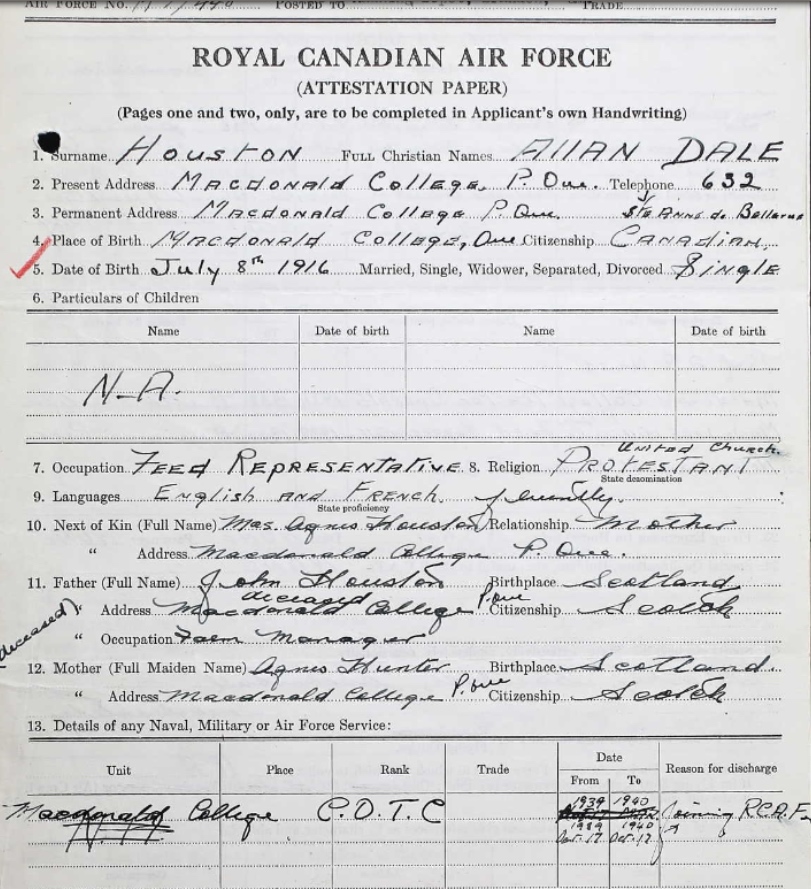 AIR FORCE NO. POSTED TO TRADE
ROYAL CANADIAN AIR FORCE
(ATTESTATION PAPER)
(Pages one and two, only, are to be completed in Applicant's own Handwriting)
1. Surname Houston FULL Christian Names Allan DALE
2. Present Address Macdonald College, P. Que. Telephone 632
3. Permanent Address Macdonald College P. Que. Ste Anne de Bellevue
4. Place of Birth Macdonald College, Que Citizenship Canadian
5. Date of Birth July 8th 1916 Married, Single, Widower, Separated, Divorced Single
6. Particulars of Children
Name Date of birth Name Date of birth
N.A.
United Church.
7. Occupation Feed Representative 8. Religion PROTESTANT
State denomination
9. Languages English and French. fluently.
State proficiency
10. Next of Kin (Full Name) Mrs. Agnes Houston Relationship Mother
" Address Macdonald College P. Que.
11. Father (Full Name) John Houston Birthplace Scotland
deceased
(deceased) " Address Macdonald College P.Que Citizenship Scotch
" Occupation Farm Manager
12. Mother (Full Maiden Name) Agnes Hunter Birthplace Scotland
" Address Macdonald College P.Que Citizenship Scotch
13. Details of any Naval, Military or Air Force Service:
Unit Place Rank Trade Date Reason for discharge
From To
Macdonald College C.O.T.C 1939 1940 joining R.C.A.F.
1939 1940
Oct-17 Oct-17